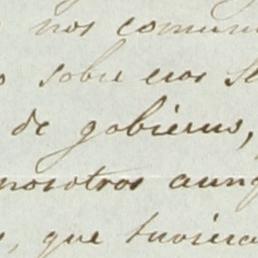 nos comun
sobre esos se
de gobierno,
nosotros aunq
, que tuviera